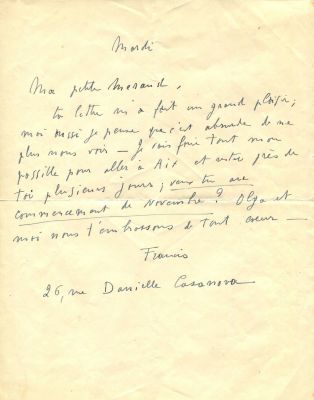 Mardi
Ma petite Meraud,
ta lettre m'a fait un grand plaisir;
moi aussi je pense que c'est absurde de ne
plus nous voir — Je vais faire tout mon
possible pour aller à Aix et être près de
toi plusieurs jours; veux tu au
commencement de Novembre? Olga et
moi nous t'embrassons de tout cœur —
Francis
26, rue Danielle Casanova